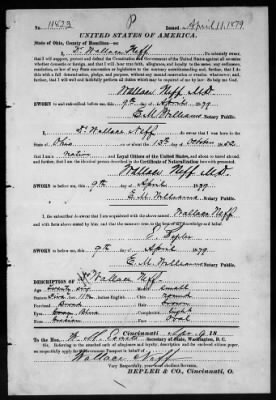 No. 11423 P Issued April 11, 1879
UNITED STATES OF AMERICA.
State of Ohio, County of Hamilton—ss:
I, Dr Wallace Neff do solemnly swear,
that I will support, protect and defend the Constitution and Government of the United States against all enemies,
whether domestic or foreign, and that I will bear true faith, allegiance and loyalty to the same, any ordinance,
resolution, or law of any State Convention or Legislature to the contrary notwithstanding; and further, that I do
this with a full determination, pledge, and purpose, without any mental reservation or evasion whatever; and,
further, that I will well and faithfully perform all duties which may be required of me by law. So help me God.
Wallace Neff M.D.
SWORN to and subscribed before me, this 9th day of April 1879
E. M. Williams Notary Public.
I, Dr Wallace Neff do swear that I was born in the
Ohio on or about the 13th day of October 1852
that I am a Native and Loyal Citizen of the United States, and about to travel abroad.
Wallace Neff M.D.
SWORN to before me, this 9th day of April 1879
E. M. Williams Notary Public.
I, the subscriber do swear that I am acquainted with the above named Wallace Neff
SWORN to before me, this 9th day of April 1879
E. M. Williams Notary Public.
DESCRIPTION OF Dr Wallace Neff.
Age
Stature Five ft. Inches English.
Forehead Broad
Eyes
Nose
Mouth small
Chin round
Hair brown
Complexion light
Face
Cincinnati Apr 9 18
To the Hon. Secretary of State, Washington, D. C.
Sir, Referring to the attached oaths of allegiance and loyalty, description and the enclosed citizen paper,
we respectfully apply for the necessary Passport in behalf of
Wallace Neff
Very Respectfully, your obedient Servants,
HEPLER & CO., Cincinnati, O.